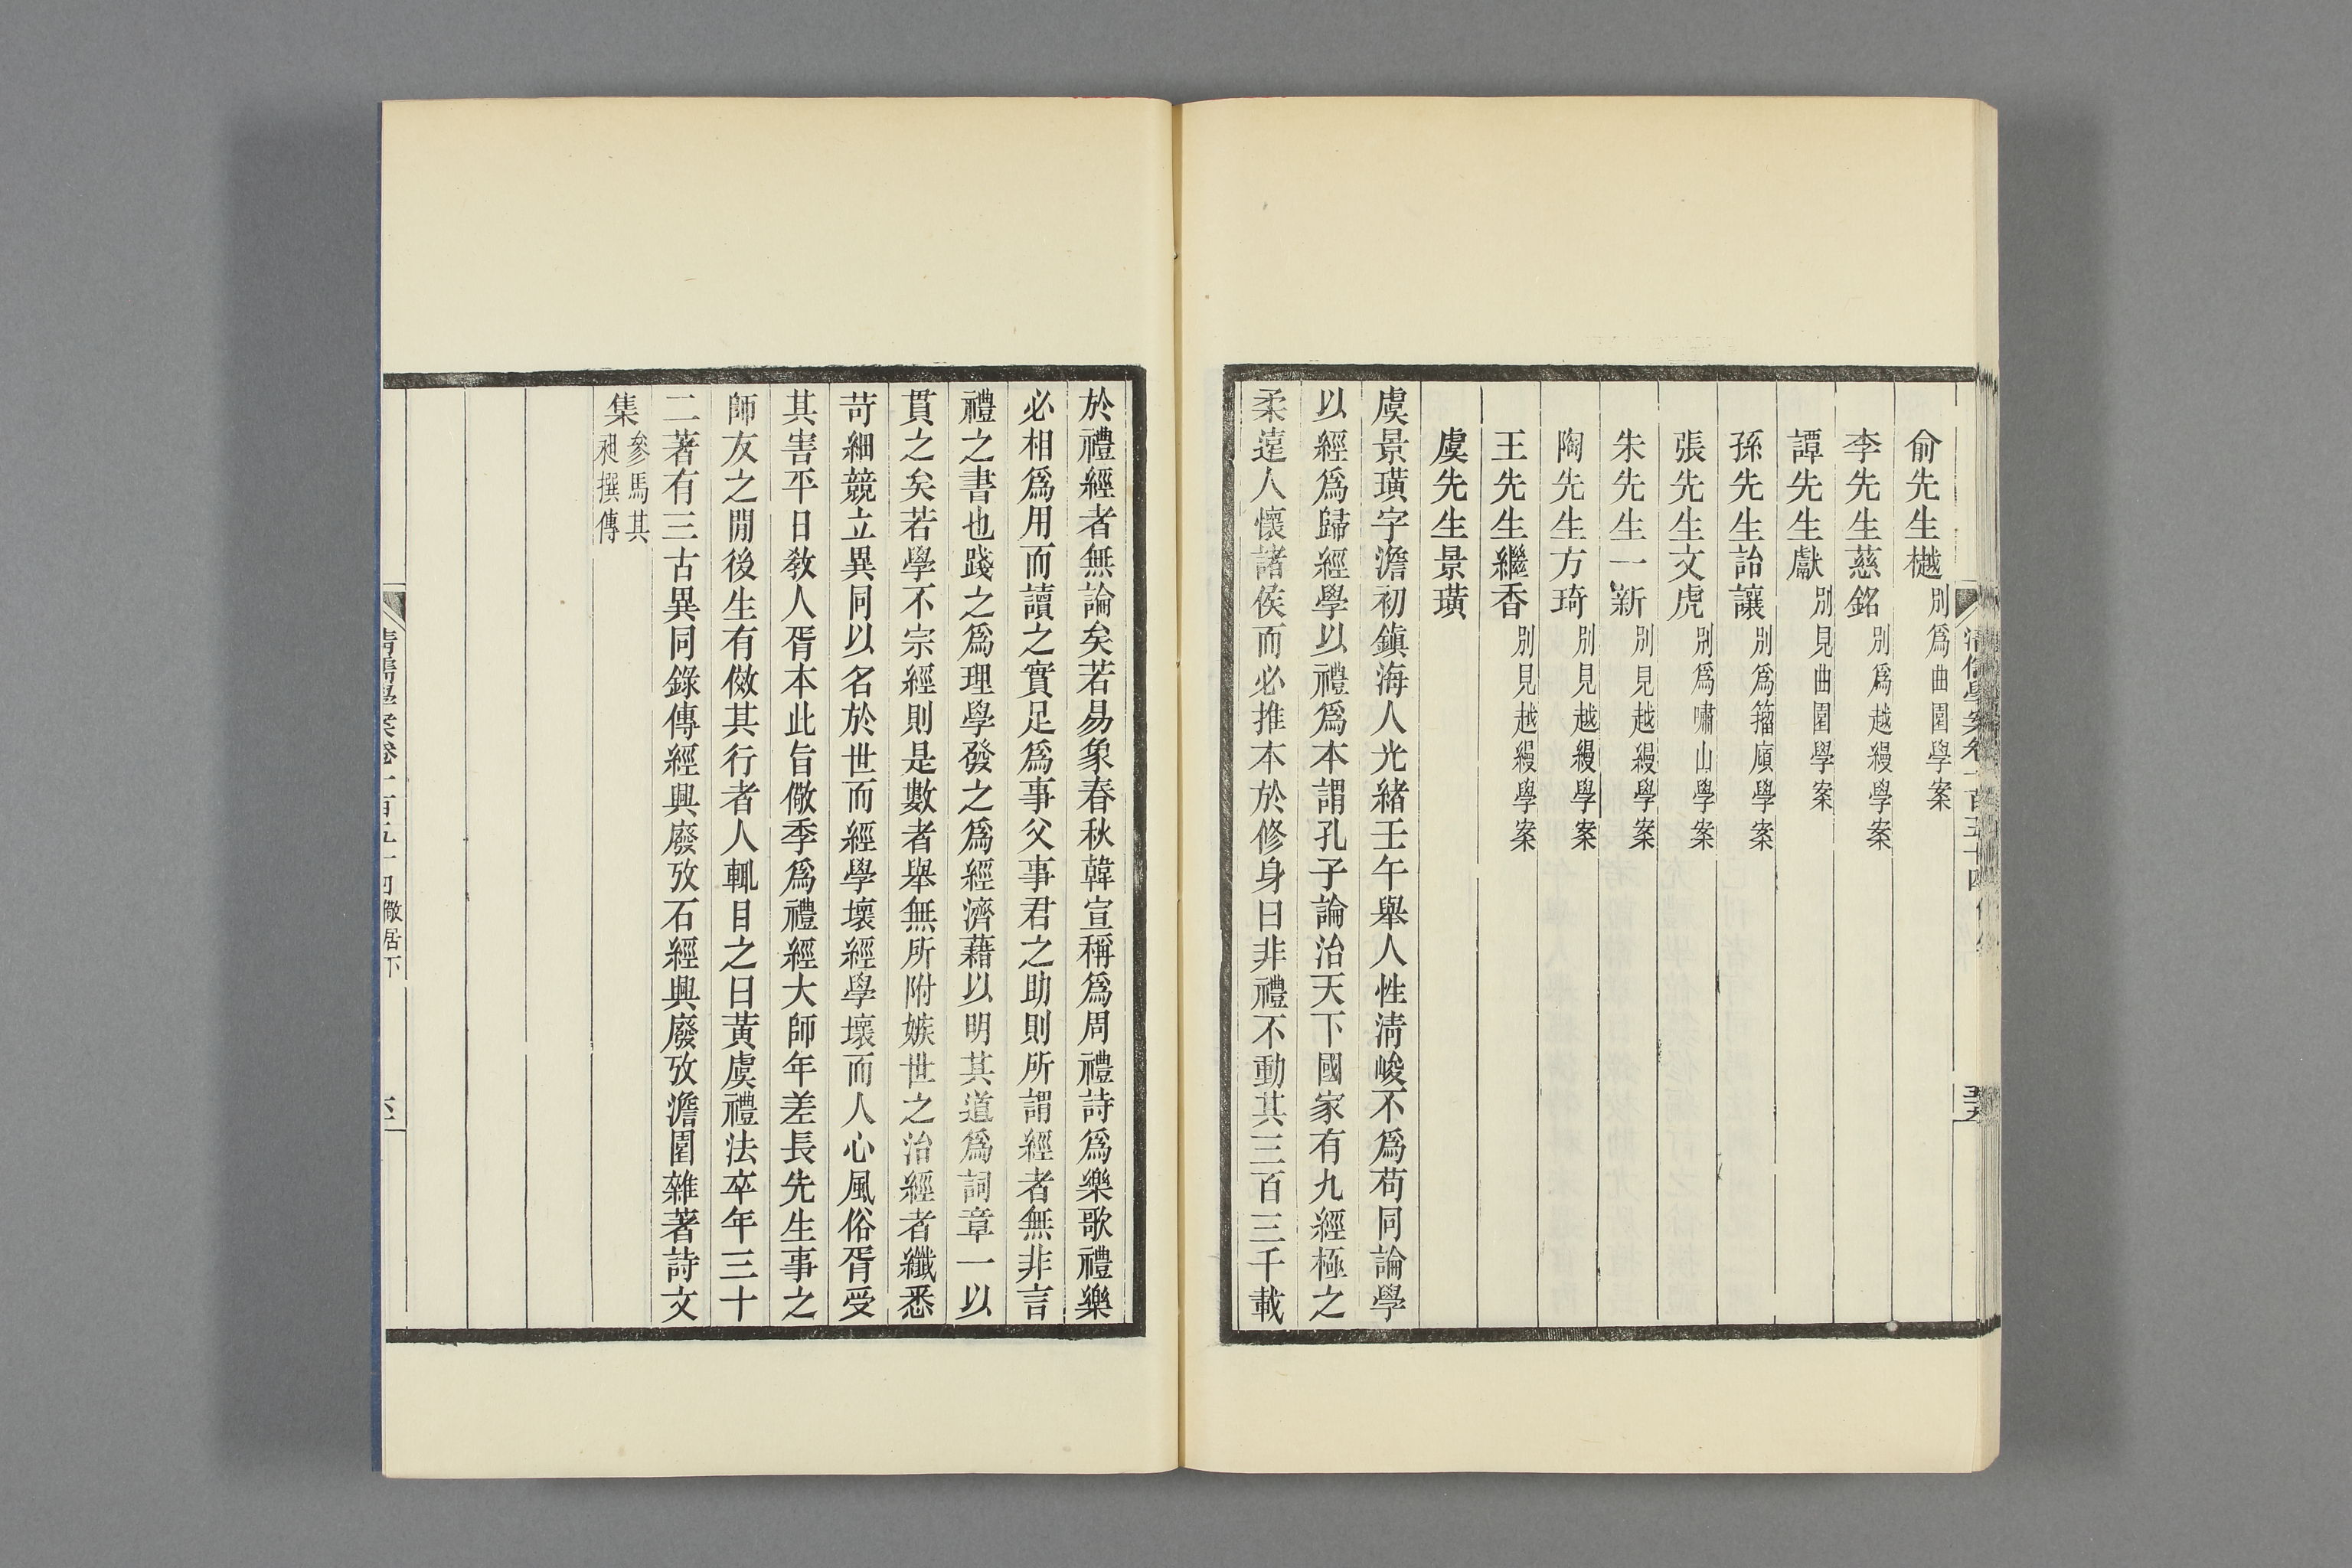 俞先生樾別爲曲園學案
李先生慈銘別爲越縵學案
譚先生獻別見曲園學案
孫先生詒讓別爲籀廎學案
張先生文虎別爲嘯山學案
朱先生一新別見越縵學案
陶先生方琦別見越縵學案
王先生繼香別見越縵學案
虞先生景璜
虞景璜字澹初鎮海人光緒壬午舉人性淸峻不爲苟同論學
以經爲歸經學以禮爲本謂孔子論治天下國家有九經極之
柔遠人懷諸侯而必推本於修身曰非禮不動其三百三千載
於禮經者無論矣若易象春秋韓宣稱爲周禮詩爲樂歌禮樂
必相爲用而讀之實足爲事父事君之助則所謂經者無非言
禮之書也踐之爲理學發之爲經濟藉以明其道爲詞章一以
貫之矣若學不宗經則是數者舉無所附嫉世之治經者纖悉
苛細競立異同以名於世而經學壞經學壞而人心風俗胥受
其害平日教人胥本此旨儆季爲禮經大師年差長先生事之
師友之閒後生有儆其行者人輒目之曰黃虞禮法卒年三十
二著有三古異同錄傳經興廢攷石經興廢攷澹園雜著詩文
集參馬其
昶撰傳
清儒學案卷一百五十四儆居下